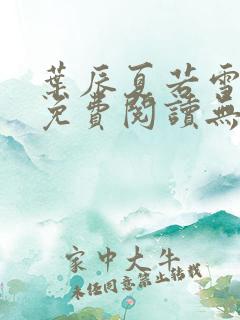 葉辰夏若雪
免費閱讀無
家中大牛
未經同意禁止轉載